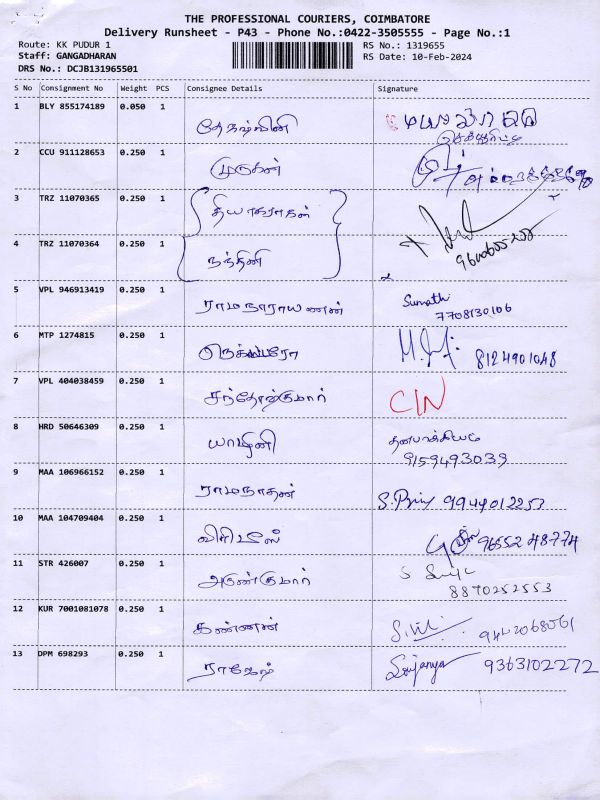 THE PROFESSIONAL COURIERS, COIMBATORE
Delivery Runsheet - P43 - Phone No.:0422-3505555 - Page No.:1
Route: KK PUDUR 1 RS No.: 1319655
Staff: GANGADHARAN RS Date: 10-Feb-2024
DRS No.: DCJB131965501
S No Consignment No Weight PCS Consignee Details Signature
1 BLY 855174189 0.050 1
2 CCU 911128653 0.250 1 முருகன்
3 TRZ 11070365 0.250 1 தியாகராகன்
9600605208
4 TRZ 11070364 0.250 1 நந்தினி
5 VPL 946913419 0.250 1 ராமநாராயணன் Sumath
7708130106
6 MTP 1274815 0.250 1 8124901048
7 VPL 404038459 0.250 1 சந்தோஷ்குமார் CIN
8 HRD 50646309 0.250 1 யாழினி தனபாக்கியம்
9159493039
9 MAA 106966152 0.250 1 ராமநாதன் S. Priy 9944012253
10 MAA 104709404 0.250 1 96552 48774
11 STR 426007 0.250 1 அருண்குமார்
8870252553
12 KUR 7001081078 0.250 1 கண்ணன் 9442068061
13 DPM 698293 0.250 1 ராஜேஷ் Srijanya 9363102272